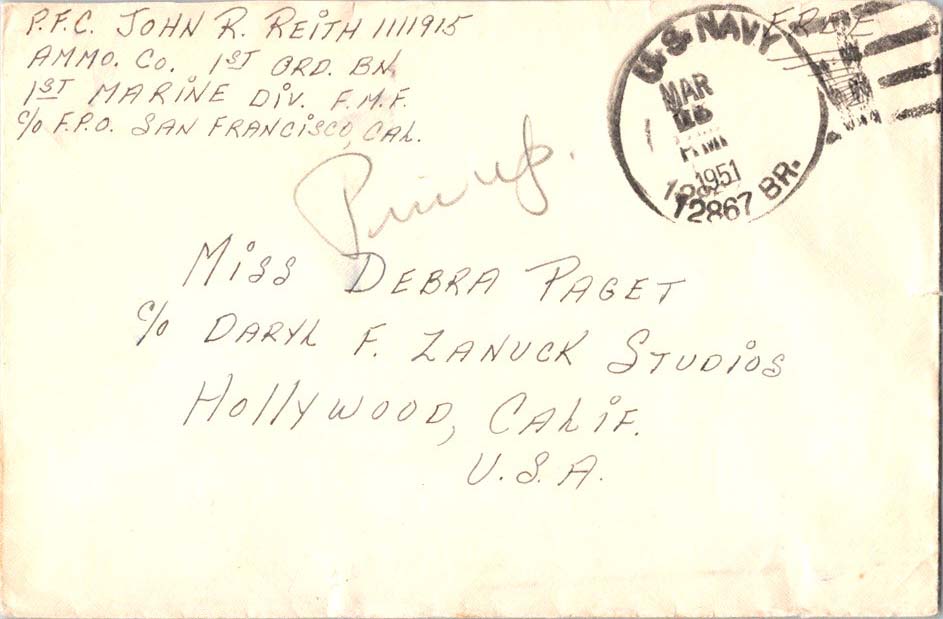 P.F.C. JOHN R. REITH 1111915
AMMO. CO. 1ST ORD. BN.
1ST MARINE DIV. F.M.F.
C/O F.P.O. SAN FRANCISCO, CAL.
FREE
U.S. NAVY
MAR
1951
12867 BR.
Pin up.
MISS DEBRA PAGET
C/O DARYL F. ZANUCK STUDIOS
HOLLYWOOD, CALIF.
U.S.A.